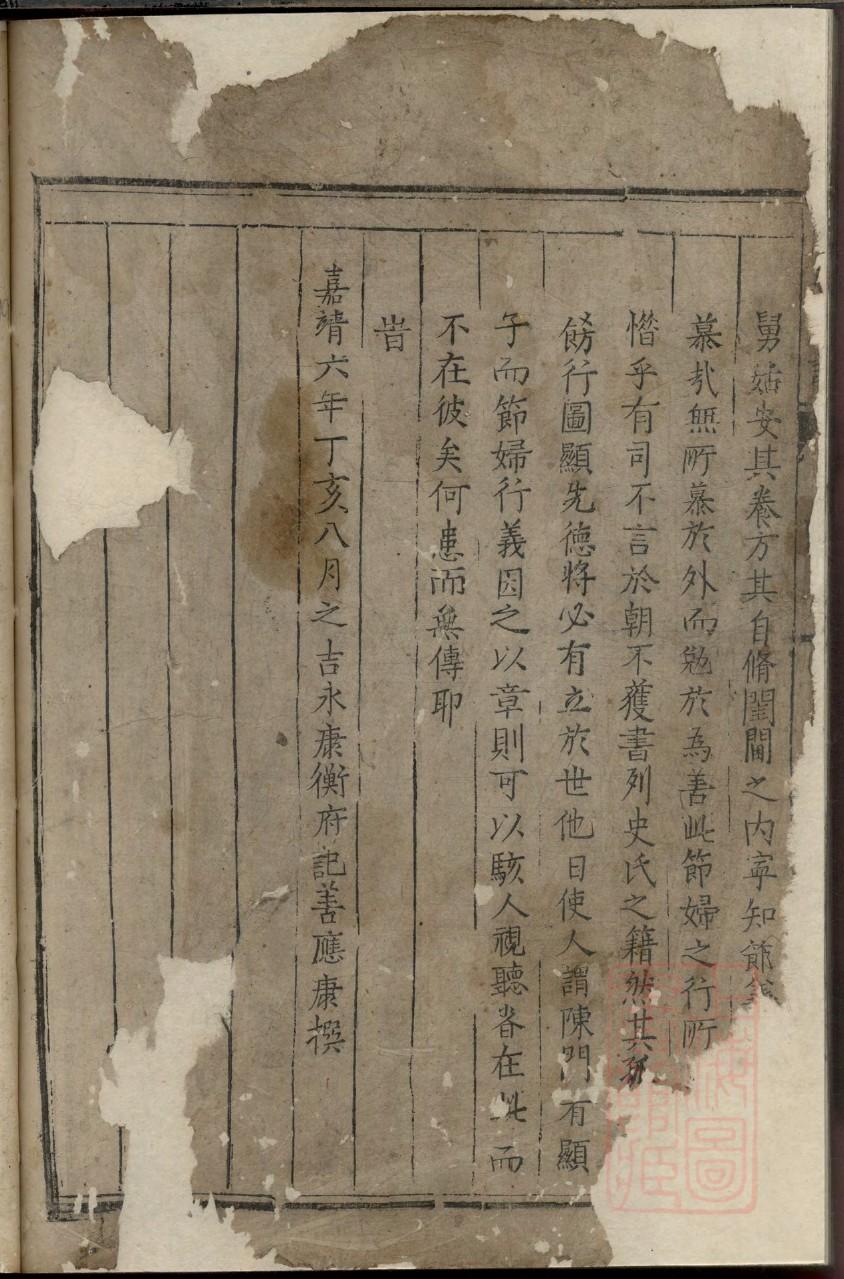 舅姑安其養方其自脩閨閫之内寕知節
慕哉無所慕於外而勉於為善此節婦之行所
惜乎有司不言於朝不獲書列史氏之籍然其孤
飭行圖顯先德將必有立於世他日使人謂陳門有顯
子而節婦行義因之以章則可以駭人視聽者在此而
不在彼矣何患而無傳耶
旹
嘉靖六年丁亥八月之吉永康衡府記善應康撰